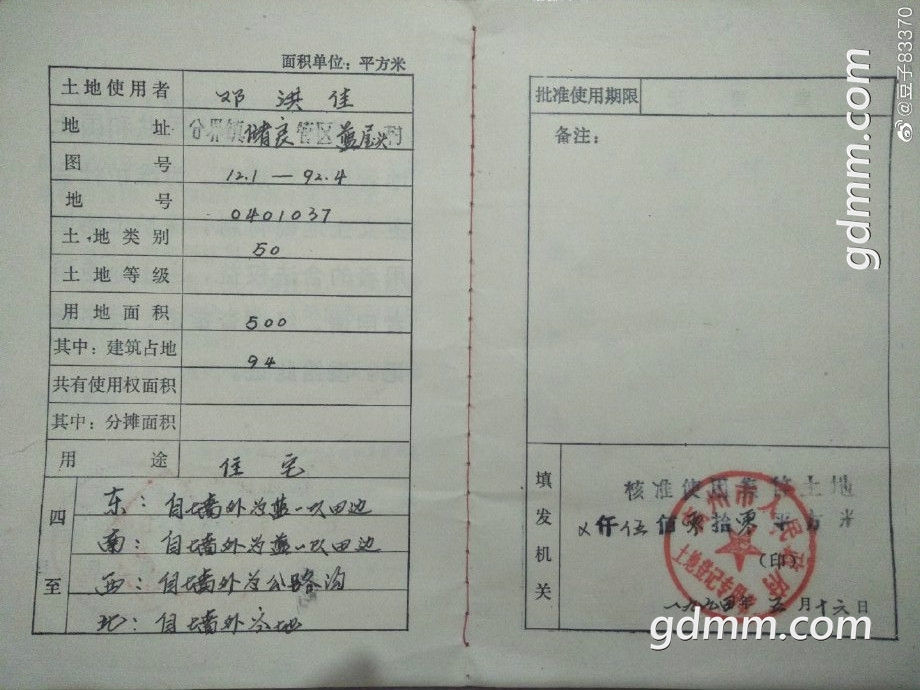 面积单位：平方米
土地使用者 邓洪佳
地址 分界镇储良管区蓝屋村
图号 12.1—92.4
地号 0401037
土地类别 50
土地等级
用地面积 500
其中：建筑占地 94
共有使用权面积
其中：分摊面积
用途 住宅
四至
东：自墙外为
南：自墙外为
西：自墙外为公路沟
北：自墙外空地
批准使用期限
备注：
填发机关
核准使用 土地
仟伍佰零拾零 平方米
州市人民政府
土地登记专用
（印）
一九九四年五月十六日
@豆子83370
gdmm.com
gdmm.com